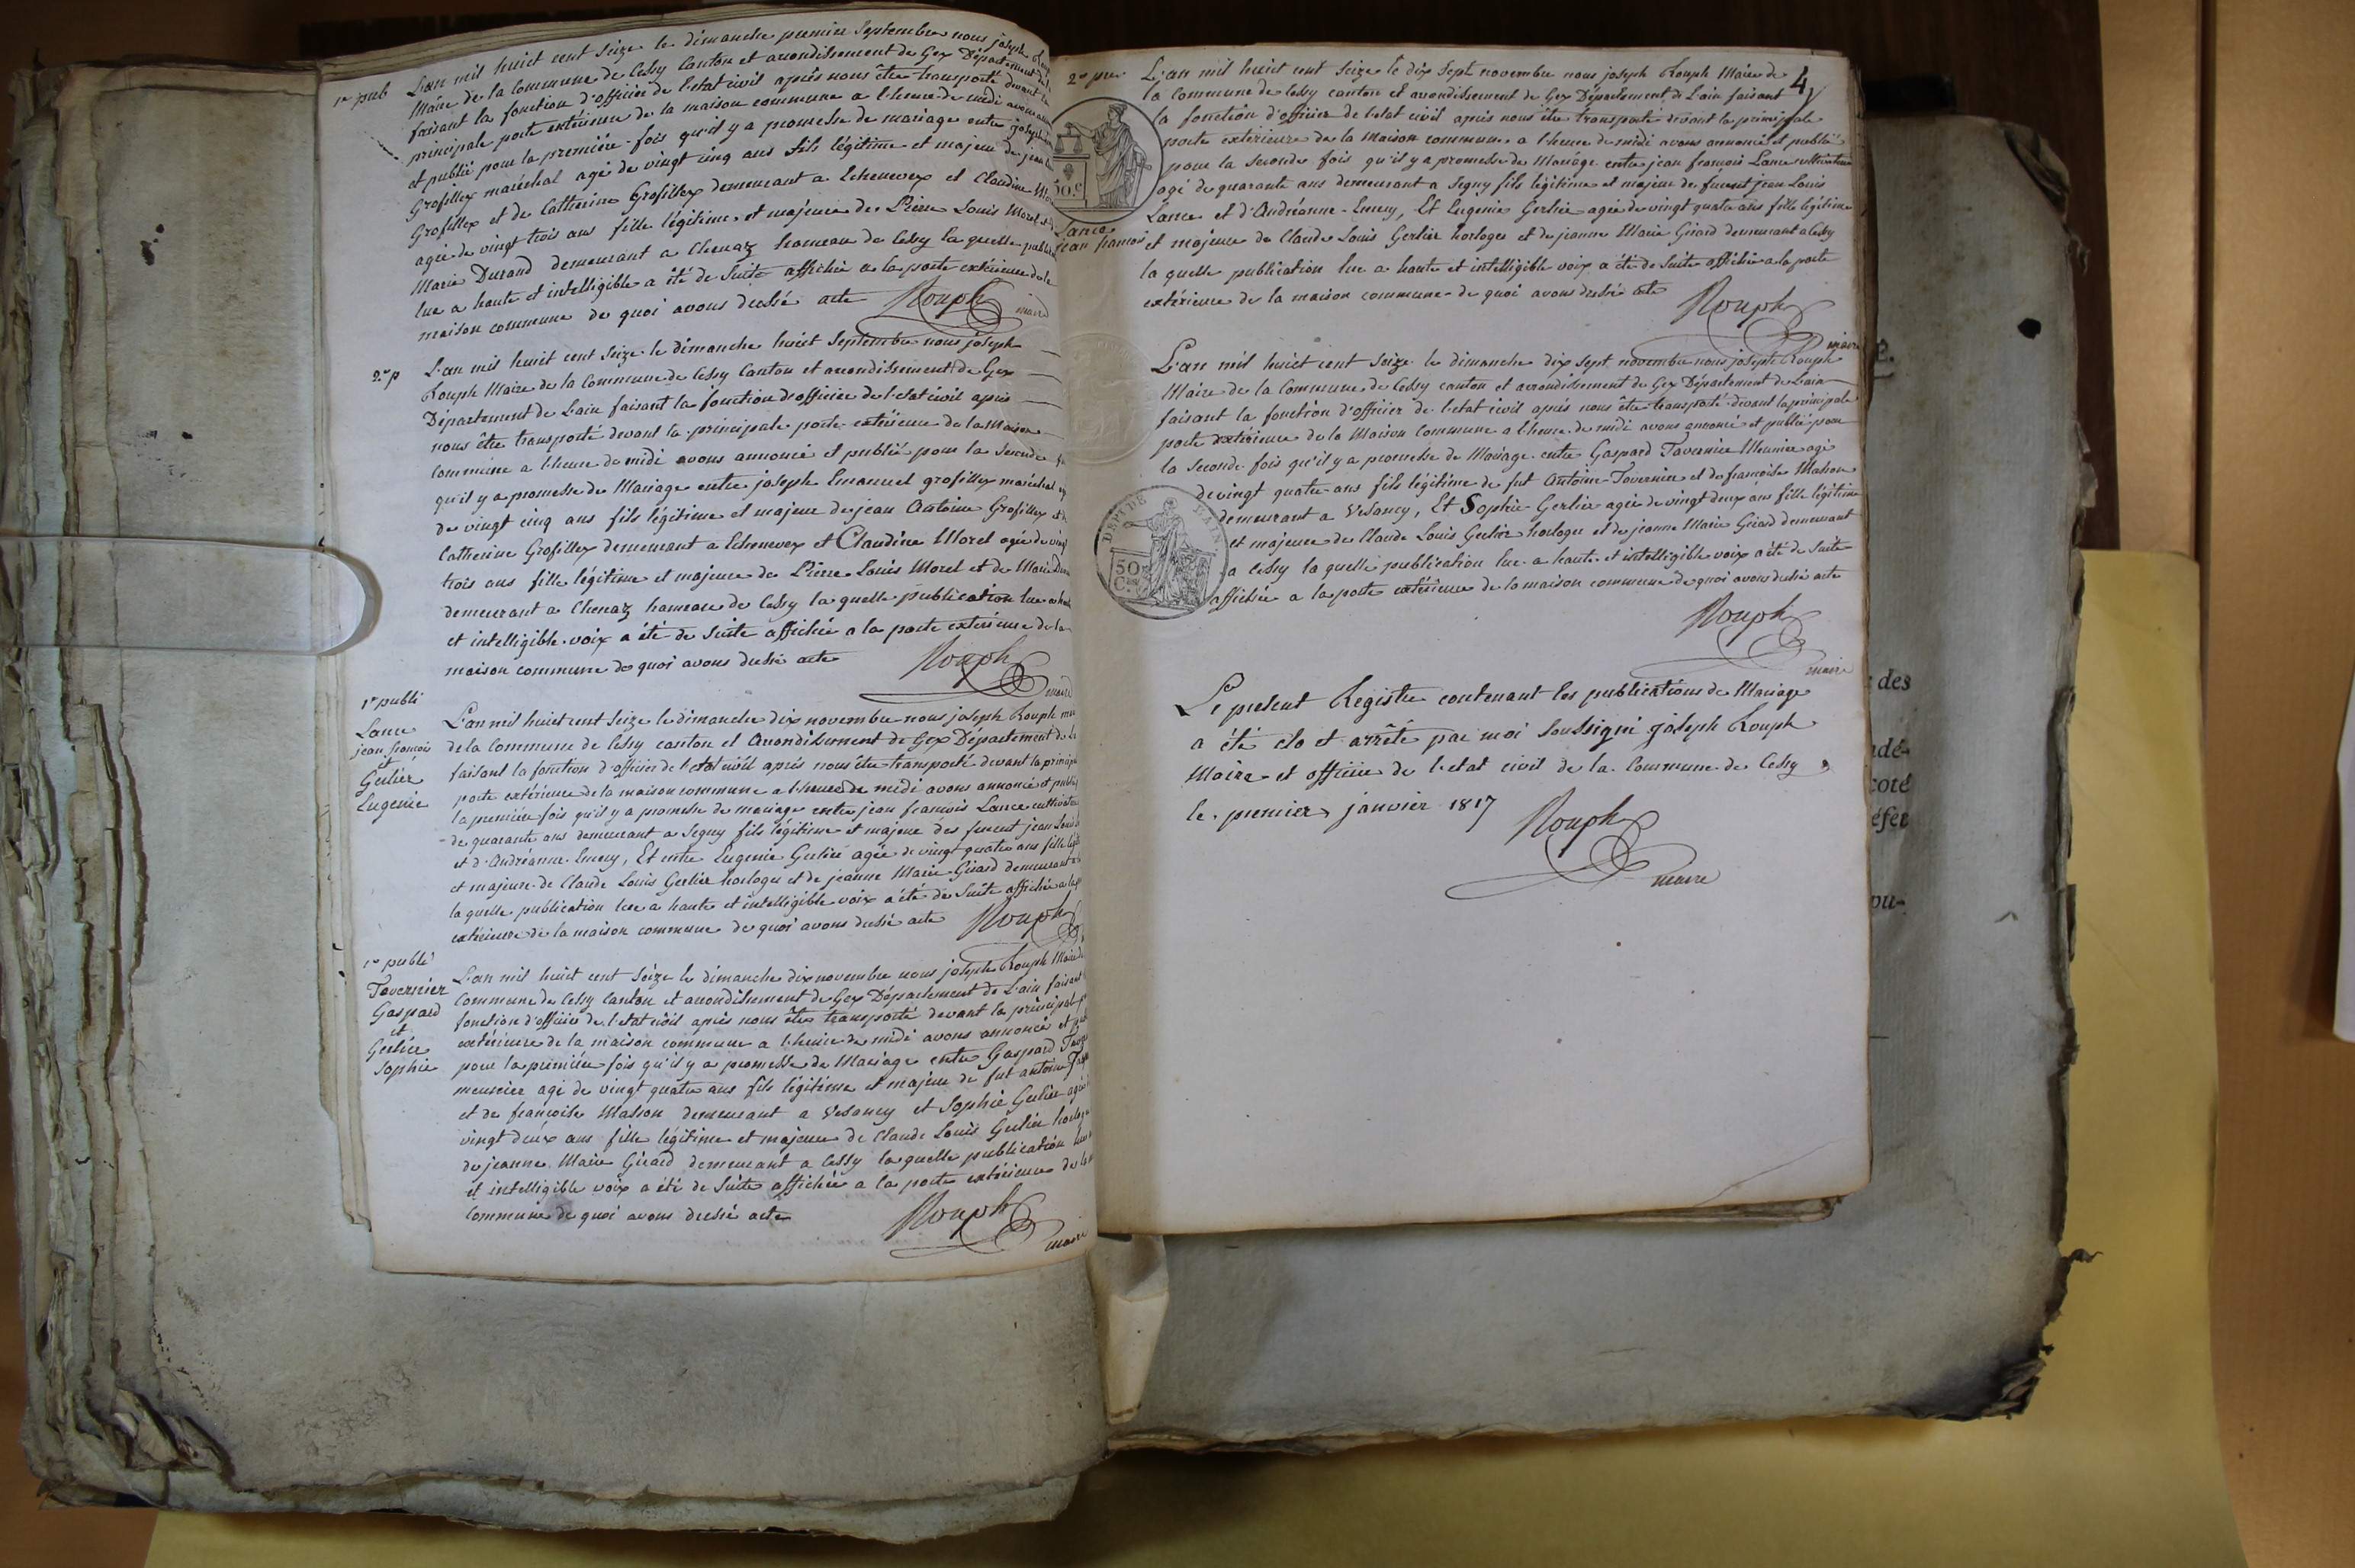 1re pub
L'an mil huict cent seize le dimanche premier Septembre nous joseph Rouph
Maire de la Commune de Cessy Canton et arrondissement de Gex Département de
faisant la fonction d'officier de l'etat civil après nous être transporté devant la
principale porte extérieure de la maison commune a l'heure de midi avons
et publié pour la première fois qu'il y a promesse de mariage entre joseph
Grosfillex maréchal agé de vingt cinq ans fils légitime et majeur de jean
Grosfillex et de Catherine Grosfillex demeurant a Echenevex et Claudine
agée de vingt trois ans fille légitime et majeure de Pierre Louis Morel et
Marie Durand demeurant a Chenaz hameau de Cessy la quelle
lue a haute et intelligible a été de suite affichée a la porte extérieure de la
maison commune de quoi avons dressé acte Rouph
maire
2e p
L'an mil huict cent seize le dimanche huict Septembre nous joseph
Rouph Maire de la Commune de Cessy Canton et arrondissement de Gex
Département de L'ain faisant la fonction d'officier de l'etat civil après
nous être transporté devant la principale porte extérieure de la Maison
commune a l'heure de midi avons annoncé et publié pour la seconde
qu'il y a promesse de Mariage entre joseph Emanuel grosfillex maréchal
de vingt cinq ans fils légitime et majeur de jean Antoine Grosfillex et
Catherine Grosfillex demeurant a Echenevex et Claudine Morel agée de vingt
trois ans fille légitime et majeure de Pierre Louis Morel et de Marie
demeurant a Chenaz hameau de Cessy la quelle publication lue a
et intelligible voix a été de suite affichée a la porte extérieure de la
maison commune de quoi avons dressé acte Rouph
maire
1re publi
Lance
jean françois
et
Gerlier
Eugenie
L'an mil huict cent seize le dimanche dix novembre nous joseph Rouph
de la Commune de Cessy canton et Arrondissement de Gex Département de
faisant la fonction d'officier de l'etat civil après nous être transporté devant la
porte extérieure de la maison commune a l'heure de midi avons annoncé et publié
la première fois qu'il y a promesse de mariage entre jean françois Lance
de quarante ans demeurant a Segny fils légitime et majeur des furent jean Louis
et d'Andréanne Emery, Et entre Eugenie Gerlier agée de vingt quatre ans fille
et majeure de Claude Louis Gerlier horloger et de jeanne Marie Girard demeurant
la quelle publication lue a haute et intelligible voix a été de suite affichée a
extérieure de la maison commune de quoi avons dressé acte Rouph
1re publi
Tavernier
Gaspard
et
Gerlier
Sophie
L'an mil huict cent seize le dimanche dix novembre nous joseph Rouph Maire de
Commune de Cessy Canton et arrondissement de Gex Département de L'ain faisant
fonction d'officier de l'etat civil après nous être transporté devant la principale
extérieure de la maison commune a l'heure de midi avons annoncé et
pour la première fois qu'il y a promesse de Mariage entre Gaspard
meunier agé de vingt quatre ans fils légitime et majeur de fut antoine
et de françoise Masson demeurant a Vesancy et Sophie Gerlier agée
vingt deux ans fille légitime et majeure de Claude Louis Gerlier
de jeanne Marie Girard demeurant a Cessy la quelle publication
et intelligible voix a été de suite affichée a la porte extérieure de la
Commune de quoi avons dressé acte Rouph
maire
4
2e pu
L'an mil huict cent seize le dix sept novembre nous joseph Rouph Maire de
la Commune de Cessy canton et arrondissement de Gex Département de L'ain faisant
la fonction d'officier de l'etat civil après nous être transporté devant la principale
porte extérieure de la Maison commune a l'heure de midi avons annoncé et publié
pour la seconde fois qu'il y a promesse de Mariage entre jean françois Lance cultivateur
agé de quarante ans demeurant a Segny fils légitime et majeur des furent jean Louis
Lance et d'Andréanne Emery, Et Eugenie Gerlier agée de vingt quatre ans fille légitime
Lance
jean françois
et majeure de Claude Louis Gerlier horloger et de jeanne Marie Girard demeurant a Cessy
la quelle publication lue a haute et intelligible voix a été de suite affichée a la porte
extérieure de la maison commune de quoi avons dressé acte Rouph
maire
50 C
L'an mil huict cent seize le dimanche dix sept novembre nous joseph Rouph
Maire de la Commune de Cessy canton et arrondissement de Gex Département de L'ain
faisant la fonction d'officier de l'etat civil après nous être transporté devant la principale
porte extérieure de la Maison Commune a l'heure de midi avons annoncé et publié pour
la seconde fois qu'il y a promesse de Mariage entre Gaspard Tavernier Meunier agé
de vingt quatre ans fils légitime de fut Antoine Tavernier et de françoise Masson
demeurant a Vesancy, Et Sophie Gerlier agée de vingt deux ans fille légitime
et majeure de Claude Louis Gerlier horloger et de jeanne Marie Girard demeurant
a Cessy la quelle publication lue a haute et intelligible voix a été de suite
affichée a la porte extérieure de la maison commune de quoi avons dressé acte
Rouph
maire
DEPT DE L'AIN
50
C.
Le présent Registre contenant les publications de Mariage
a été clo et arrêté par moi soussigné joseph Rouph
Maire et officier de l'etat civil de la Commune de Cessy
le premier janvier 1817 Rouph
maire
des
coté
pu-